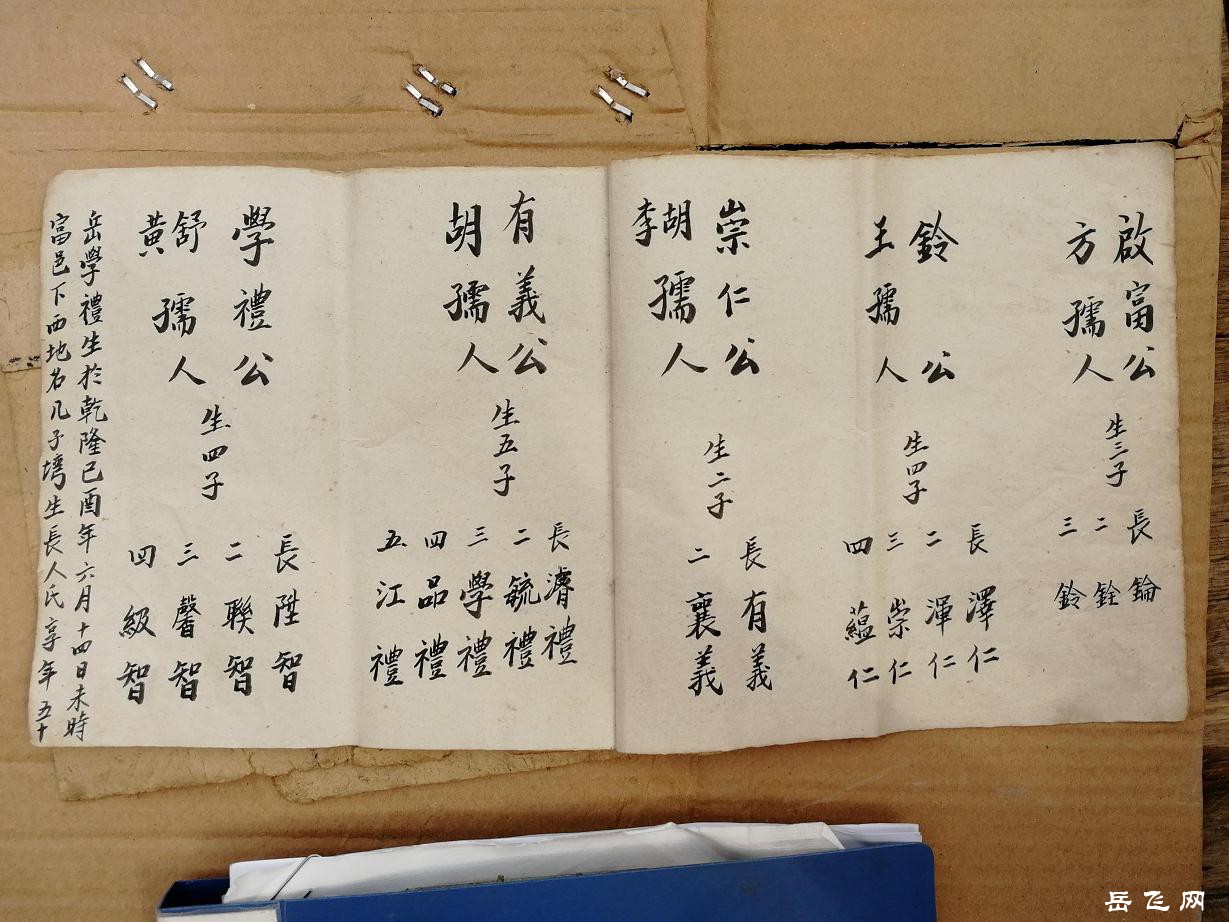 啟富公
方孺人
生三子
長錀
二銓
三鈴
鈴公
王孺人
生四子
長澤仁
二渾仁
三崇仁
四蘊仁
崇仁公
胡李孺人
生二子
長有義
二襄義
有義公
胡孺人
生五子
長濬禮
二毓禮
三學禮
四品禮
五江禮
學禮公
舒黃孺人
生四子
長陞智
二聯智
三馨智
四級智
岳學禮生於乾隆己酉年六月十四日未時
富邑下西地名几子塆生長人氏享年五十
岳飞网